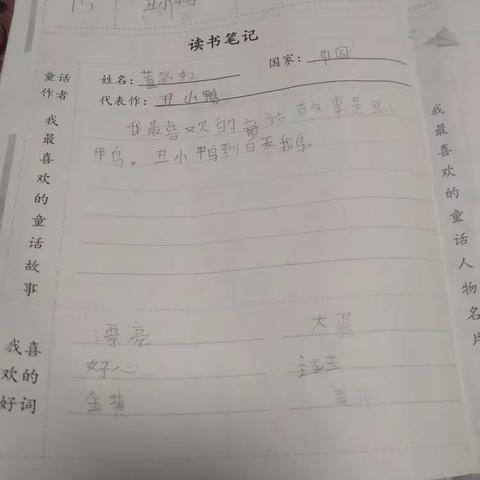 15 丑小鸭
读书笔记
童话作者
姓名:
国家: 中国
代表作: 丑小鸭
我最喜欢的童话故事
我最喜欢的童话故事是丑小
鸭。丑小鸭到白天我鸟
我喜欢的好词
漂亮 大蛋
好心
金黄
我最喜欢的童话人物名片